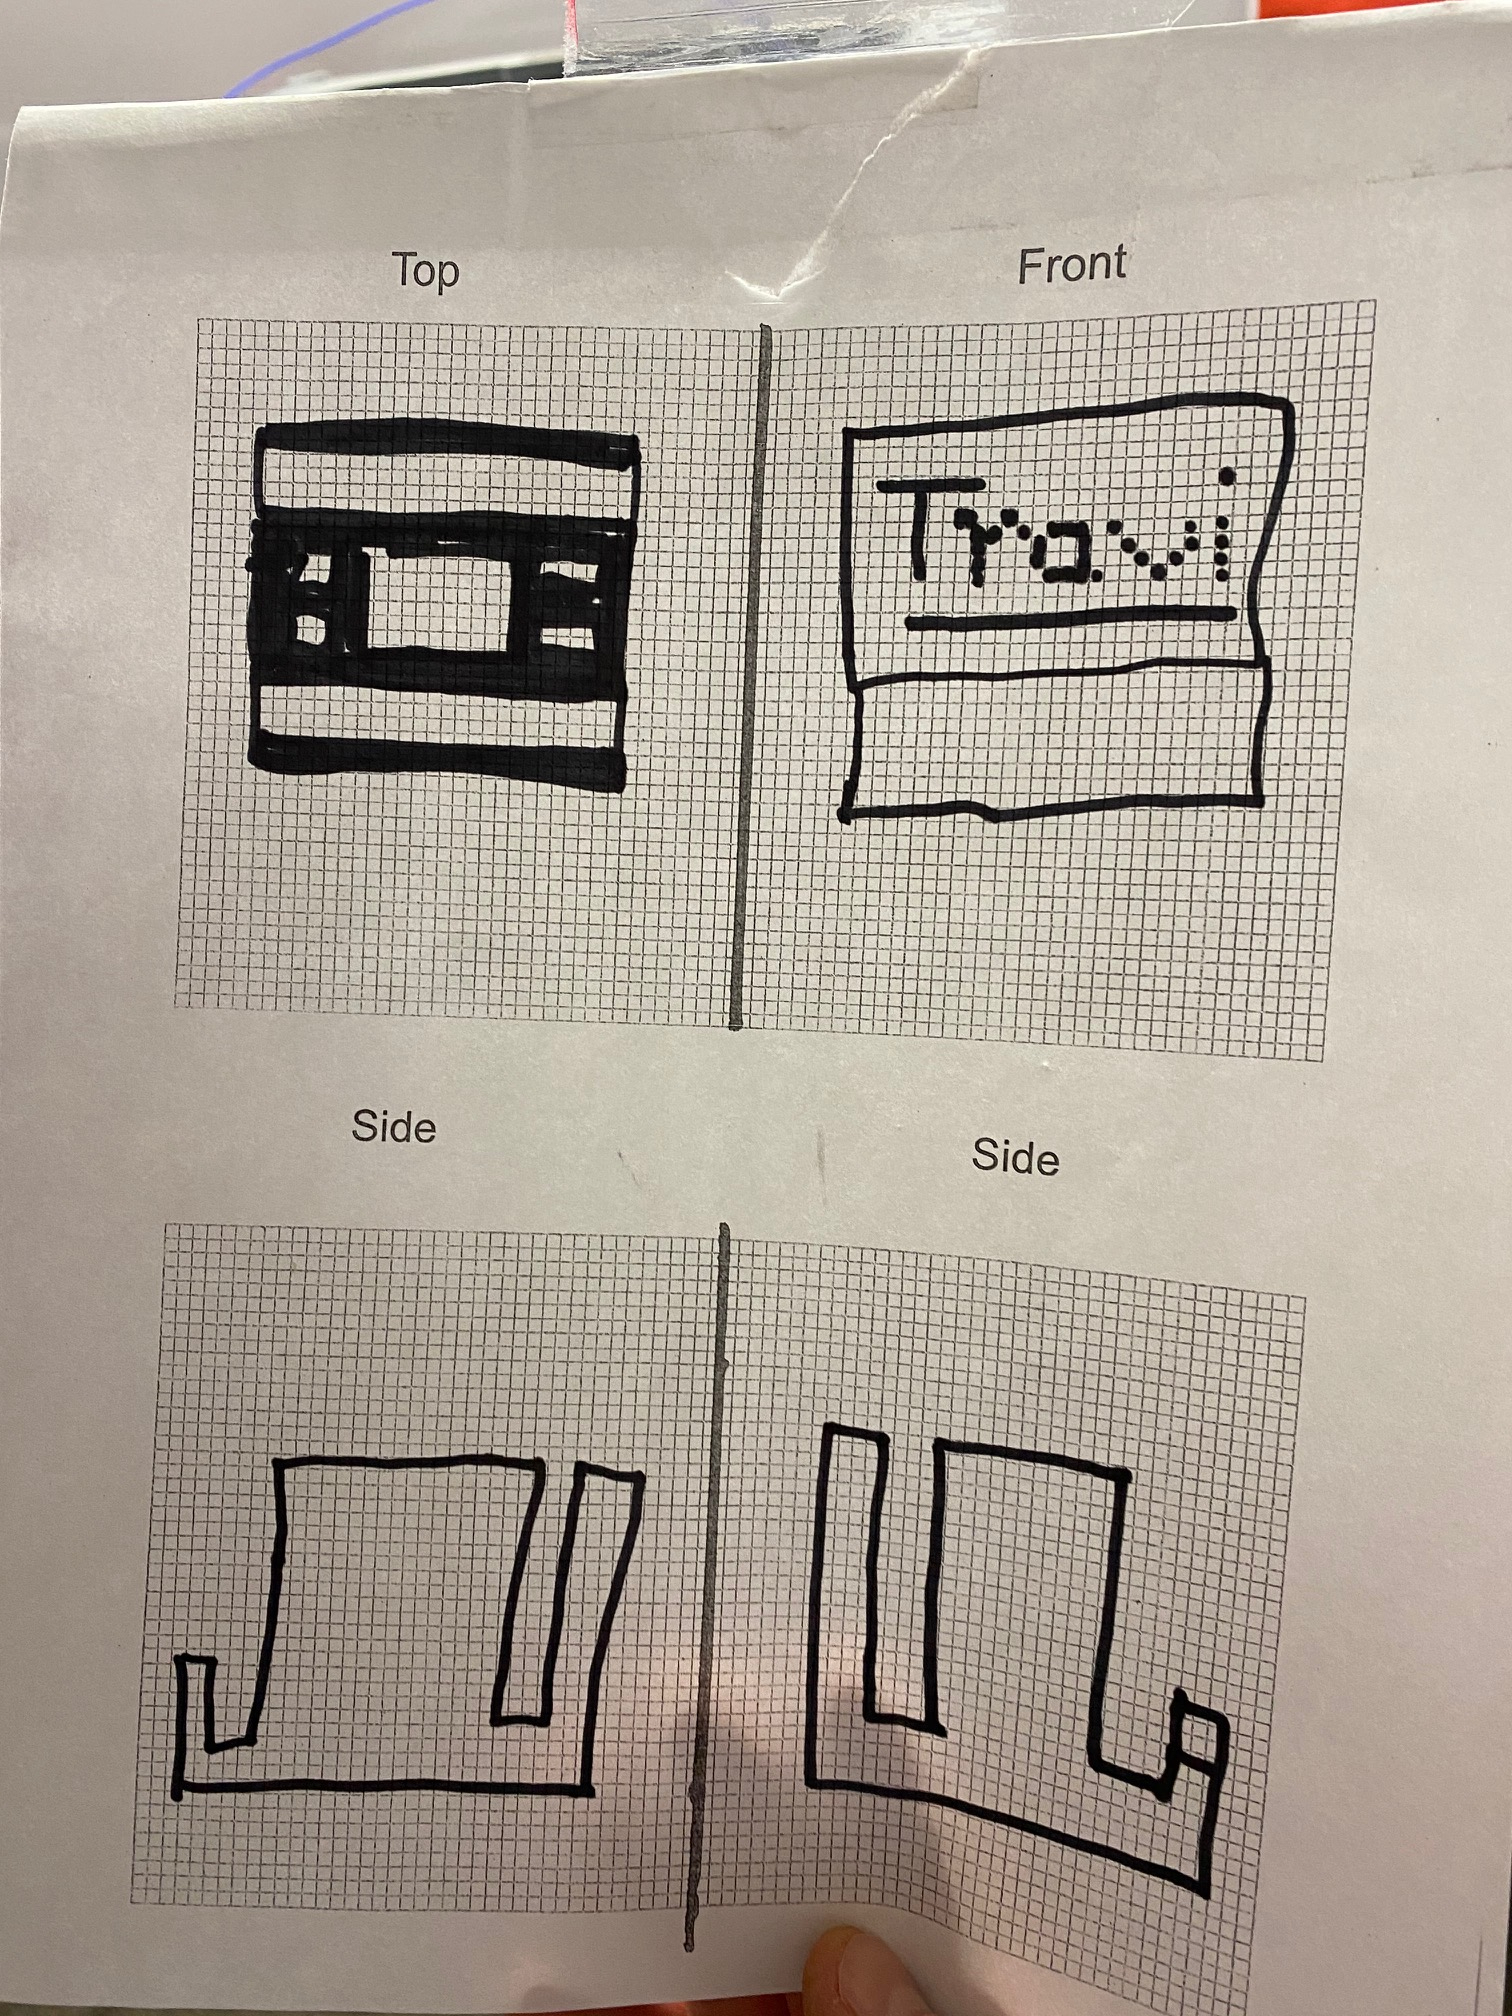 Top
Front
Travi
Side
Side